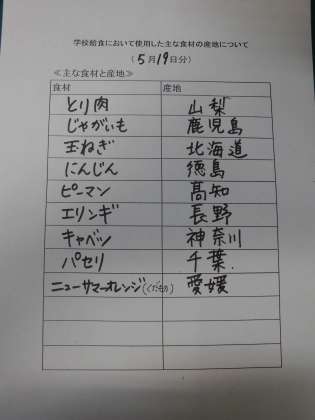 学校給食において使用した主な食材の産地について
(5月19日分)
≪主な食材と産地≫
食材 産地
とり肉 山梨
じゃがいも 鹿児島
玉ねぎ 北海道
にんじん 徳島
ピーマン 高知
エリンギ 長野
キャベツ 神奈川
パセリ 千葉
ニューサマーオレンジ(くだもの) 愛媛